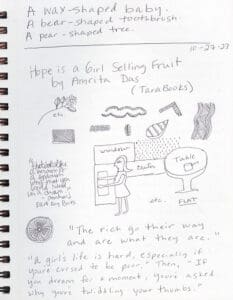 A wax-shaped baby.
A bear-shaped toothbrush.
A pear-shaped tree.
10-27-23
Hope is a Girl Selling Fruit
by Amrita Das
(TaraBooks)
etc.
window
Table
etc.
FLAT
"The rich go their way
and are what they are."
"A girl's life is hard, especially if
you're cursed to be poor. Then, "If
you dream for a moment, you're asked
why you're twiddling your thumbs."